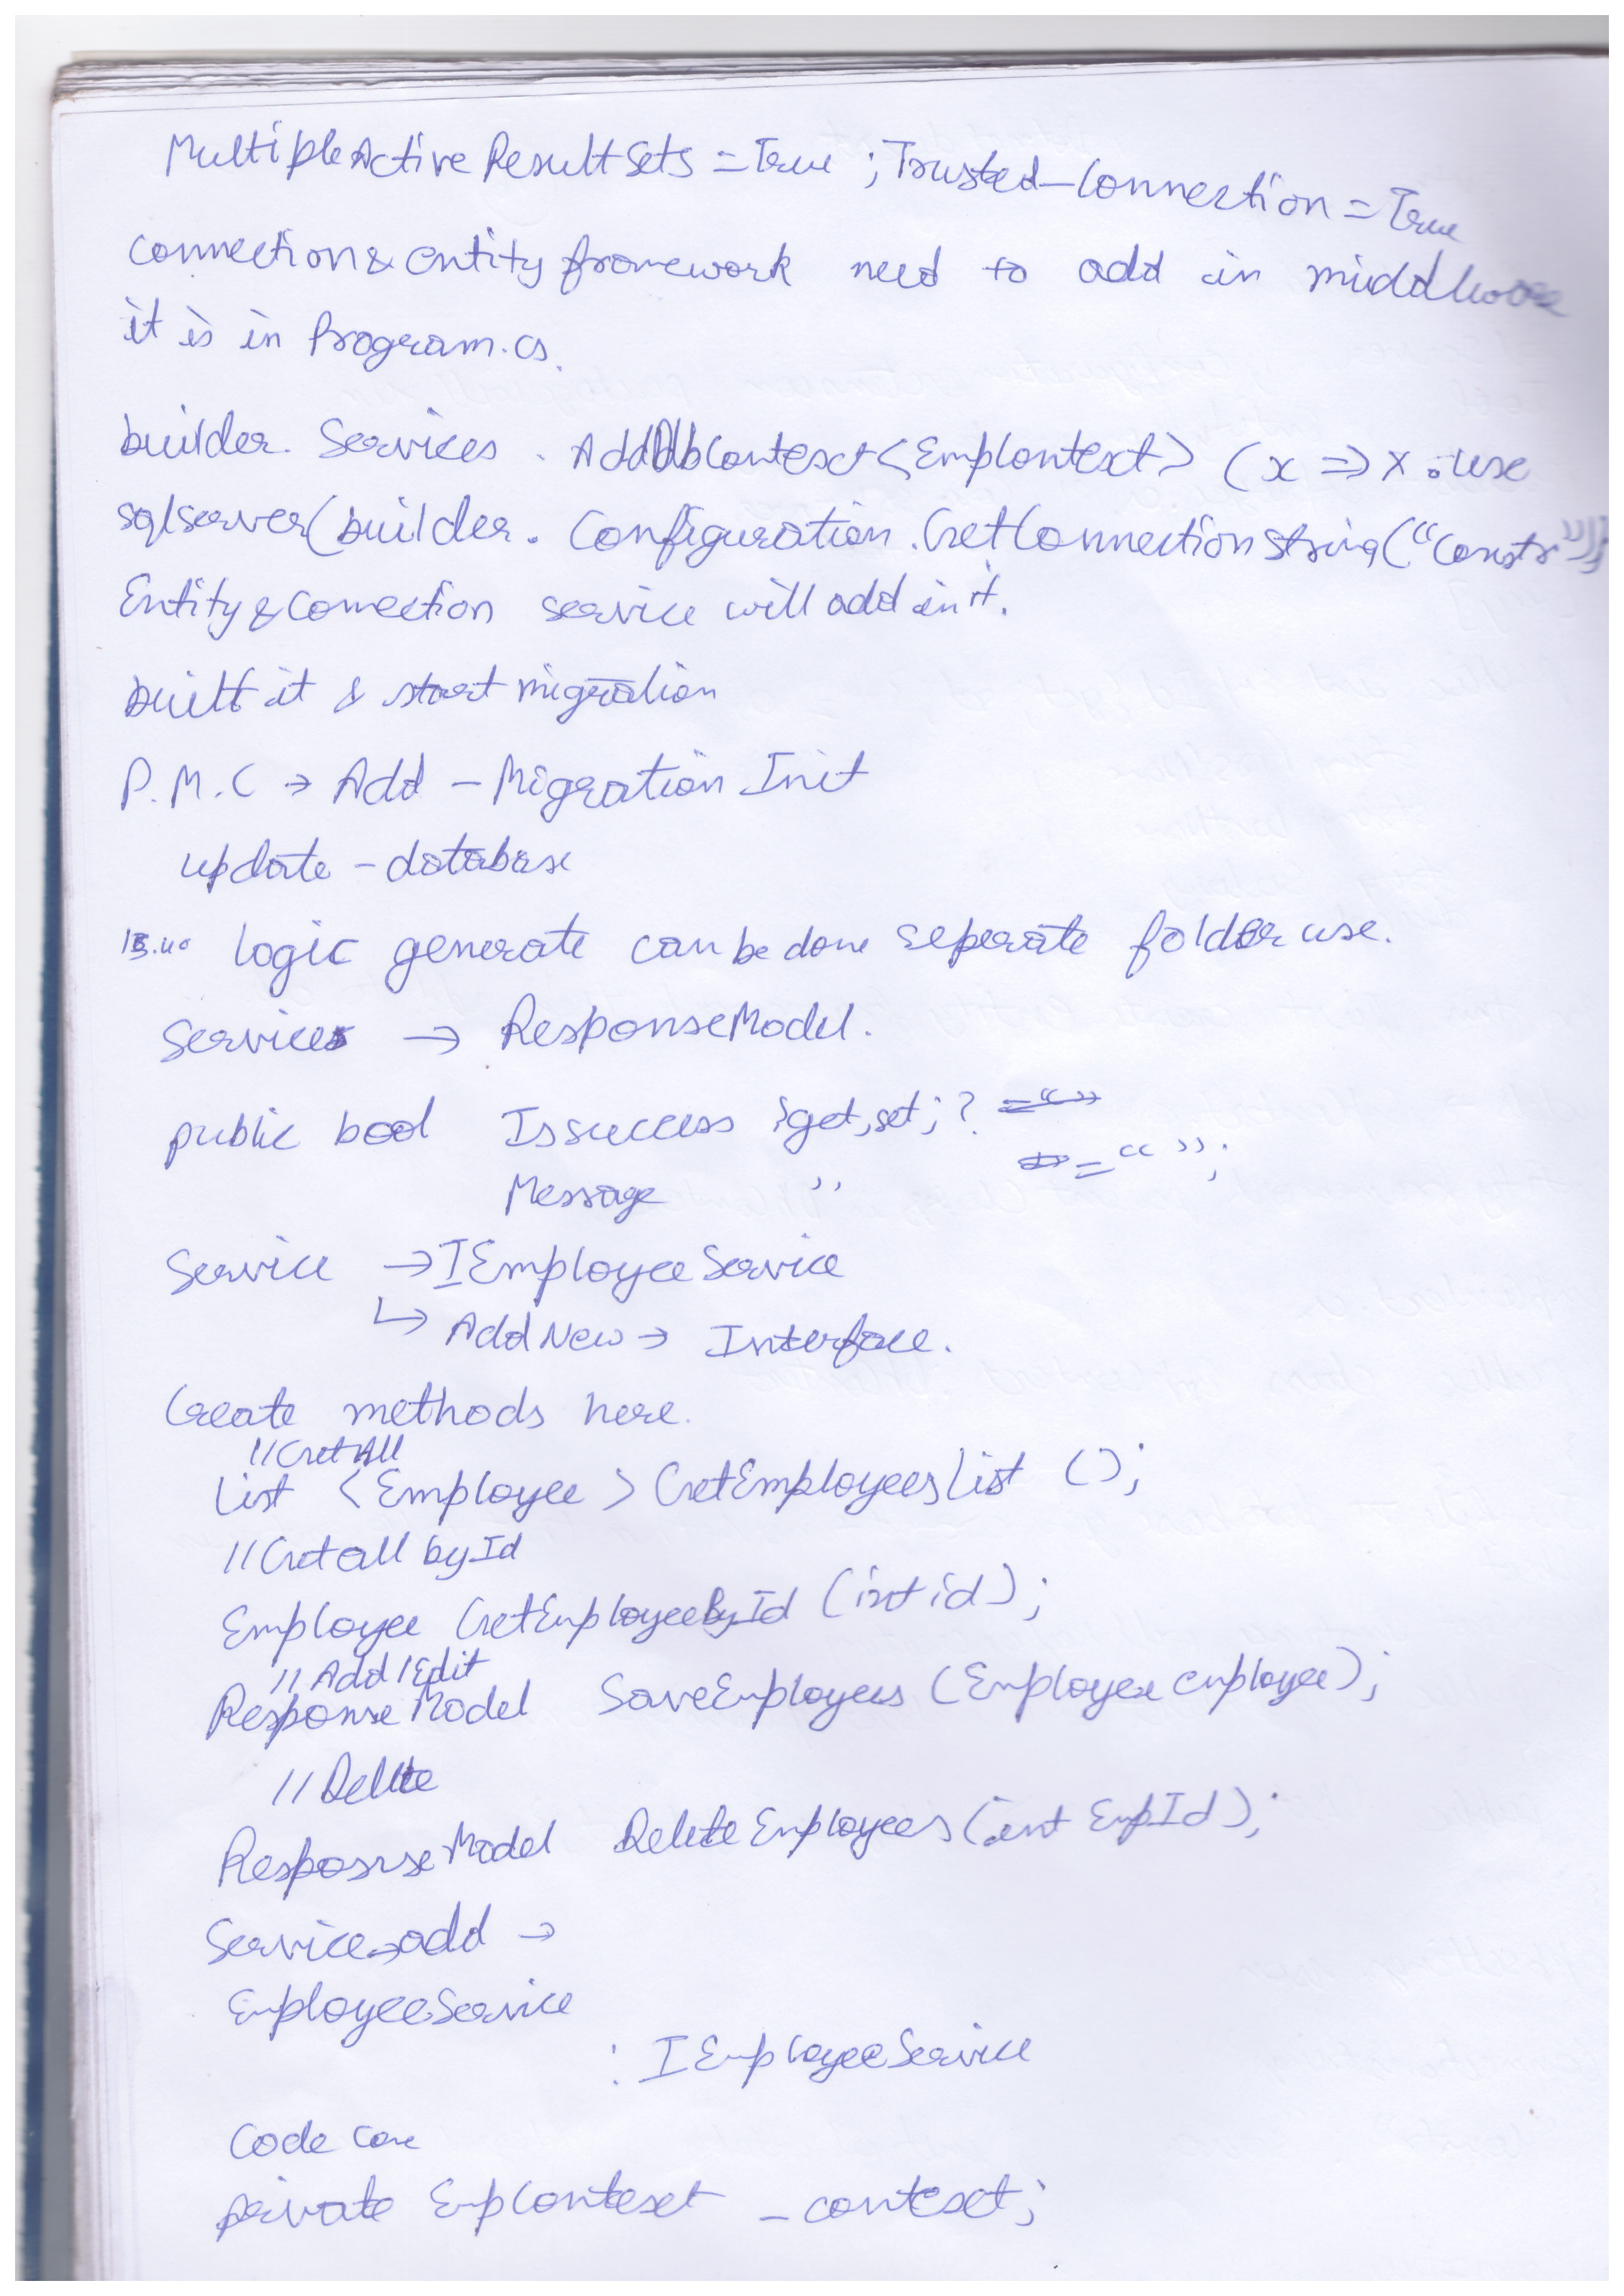 MultipleActiveResultSets=True ; Trusted_Connection=True
connection & entity framework need to add in middleware
it is in Program.cs.
builder. Services . AddDbContext<EmpContext> (x => x.use
sqlserver(builder. Configuration.GetConnectionString("Constr"));
Entity & Connection service will add in it.
built it & start migration
P.M.C → Add - Migration Init
update - database
logic generate can be done seperate folder use.
Services → ResponseModel.
public bool Issuccess {get; set;} = " ";
Message ,,
Service → IEmployeeService
↳ Add New → Interface.
Create methods here.
//GetAll
List <Employee> GetEmployeesList ();
//Getall by Id
Employee GetEmployeeById (int id);
//Add/Edit
ResponseModel SaveEmployees (Employee employee);
//Delete
ResponseModel DeleteEmployees (int EmpId);
Service → add →
EmployeeService
: IEmployeeService
Code
private EmpContext _context;